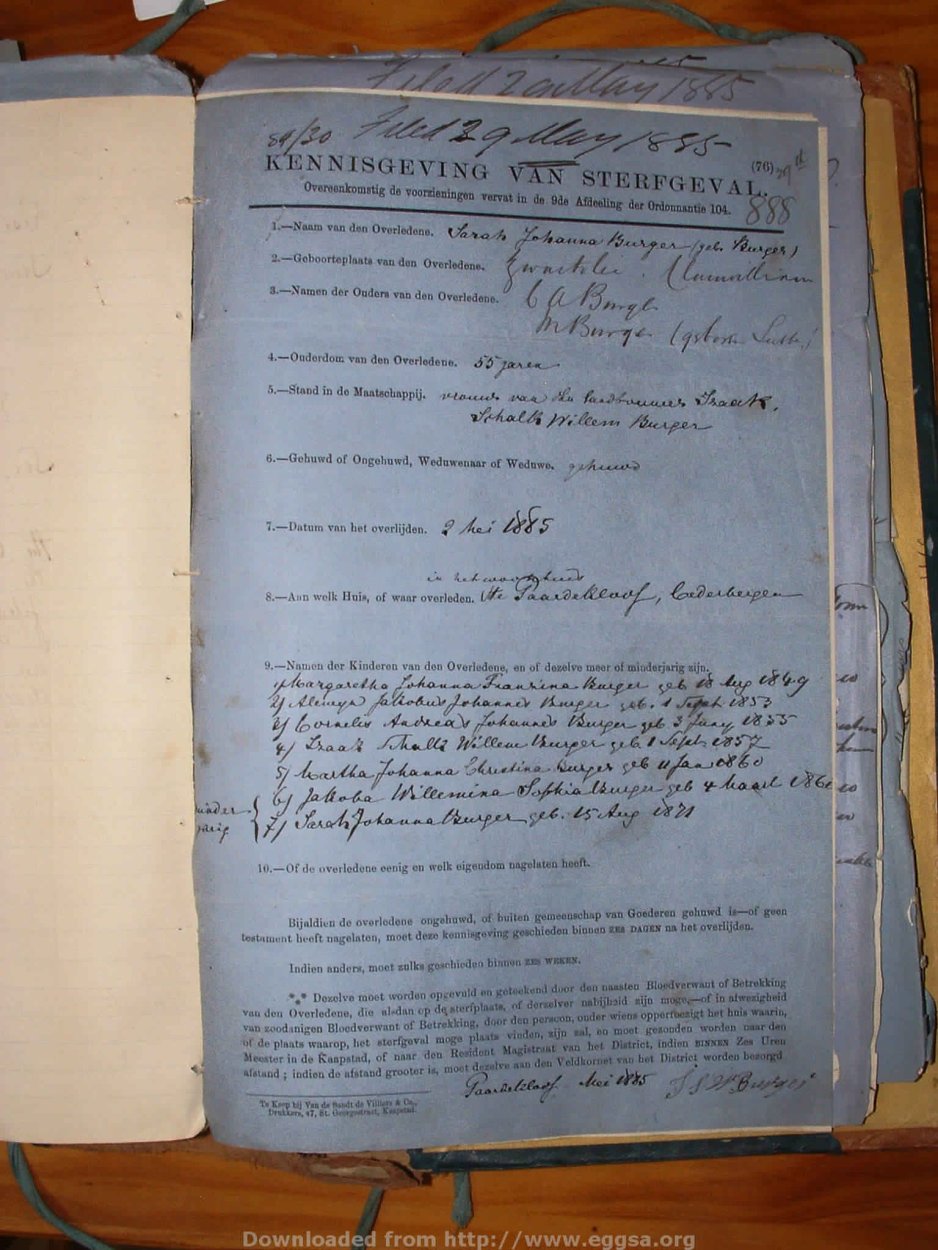 Filed 29 May 1885
84/30 Filed 29 May 1885
(76) 29th
KENNISGEVING VAN STERFGEVAL.
Overeenkomstig de voorzieningen vervat in de 9de Afdeeling der Ordonnantie 104.
888
1.—Naam van den Overledene. Sarah Johanna Burger (geb. Burger)
2.—Geboorteplaats van den Overledene. Clanwilliam
3.—Namen der Ouders van den Overledene. C A Burger
M Burger
4.—Ouderdom van den Overledene. 55 jaren
5.—Stand in de Maatschappij. vrouw van den landbouwer Izaak
Schalk Willem Burger
6.—Gehuwd of Ongehuwd, Weduwenaar of Weduwe. gehuwd
7.—Datum van het overlijden. 2 Mei 1885
in het woonhuis
8.—Aan welk Huis, of waar overleden. te Paardekloof, Cederbergen
9.—Namen der Kinderen van den Overledene, en of dezelve meer of minderjarig zijn.
1/ Margaretha Johanna Franzina Burger geb 18 Aug 1849
2/ Alewyn Jakobus Johannes Burger geb. 1 Sept 1853
3/ Cornelis Andreas Johannes Burger geb 3 Jany 1855
4/ Izaak Schalk Willem Burger geb 1 Sept 1857
5/ Martha Johanna Christina Burger geb 11 Jan 1860
6/ Jakoba Willemina Sophia Burger geb 4 Maart
minder
jarig
7/ Sarah Johanna Burger geb. 15 Aug 1871
10.—Of de overledene eenig en welk eigendom nagelaten heeft.
Bijaldien de overledene ongehuwd, of buiten gemeenschap van Goederen gehuwd is—of geen
testament heeft nagelaten, moet deze kennisgeving geschieden binnen ZES DAGEN na het overlijden.
Indien anders, moet zulks geschieden binnen ZES WEKEN.
*** Dezelve moet worden opgevuld en geteekend door den naasten Bloedverwant of Betrekking
van den Overledene, die alsdan op de sterfplaats, of derzelver nabijheid zijn moge,—of in afwezigheid
van zoodanigen Bloedverwant of Betrekking, door den persoon, onder wiens opperbezigt het huis waarin,
of de plaats waarop, het sterfgeval moge plaats vinden, zijn zal, en moet gezonden worden naar den
Meester in de Kaapstad, of naar den Resident Magistraat van het District, indien BINNEN Zes Uren
afstand; indien de afstand grooter is, moet dezelve aan den Veldkornet van het District worden bezorgd
Paardekloof Mei 1885 I S W Burger
Te Koop bij Van de Sandt de Villiers & Co.,
Drukkers, 47, St. Georgestraat, Kaapstad.
Downloaded from http://www.eggsa.org